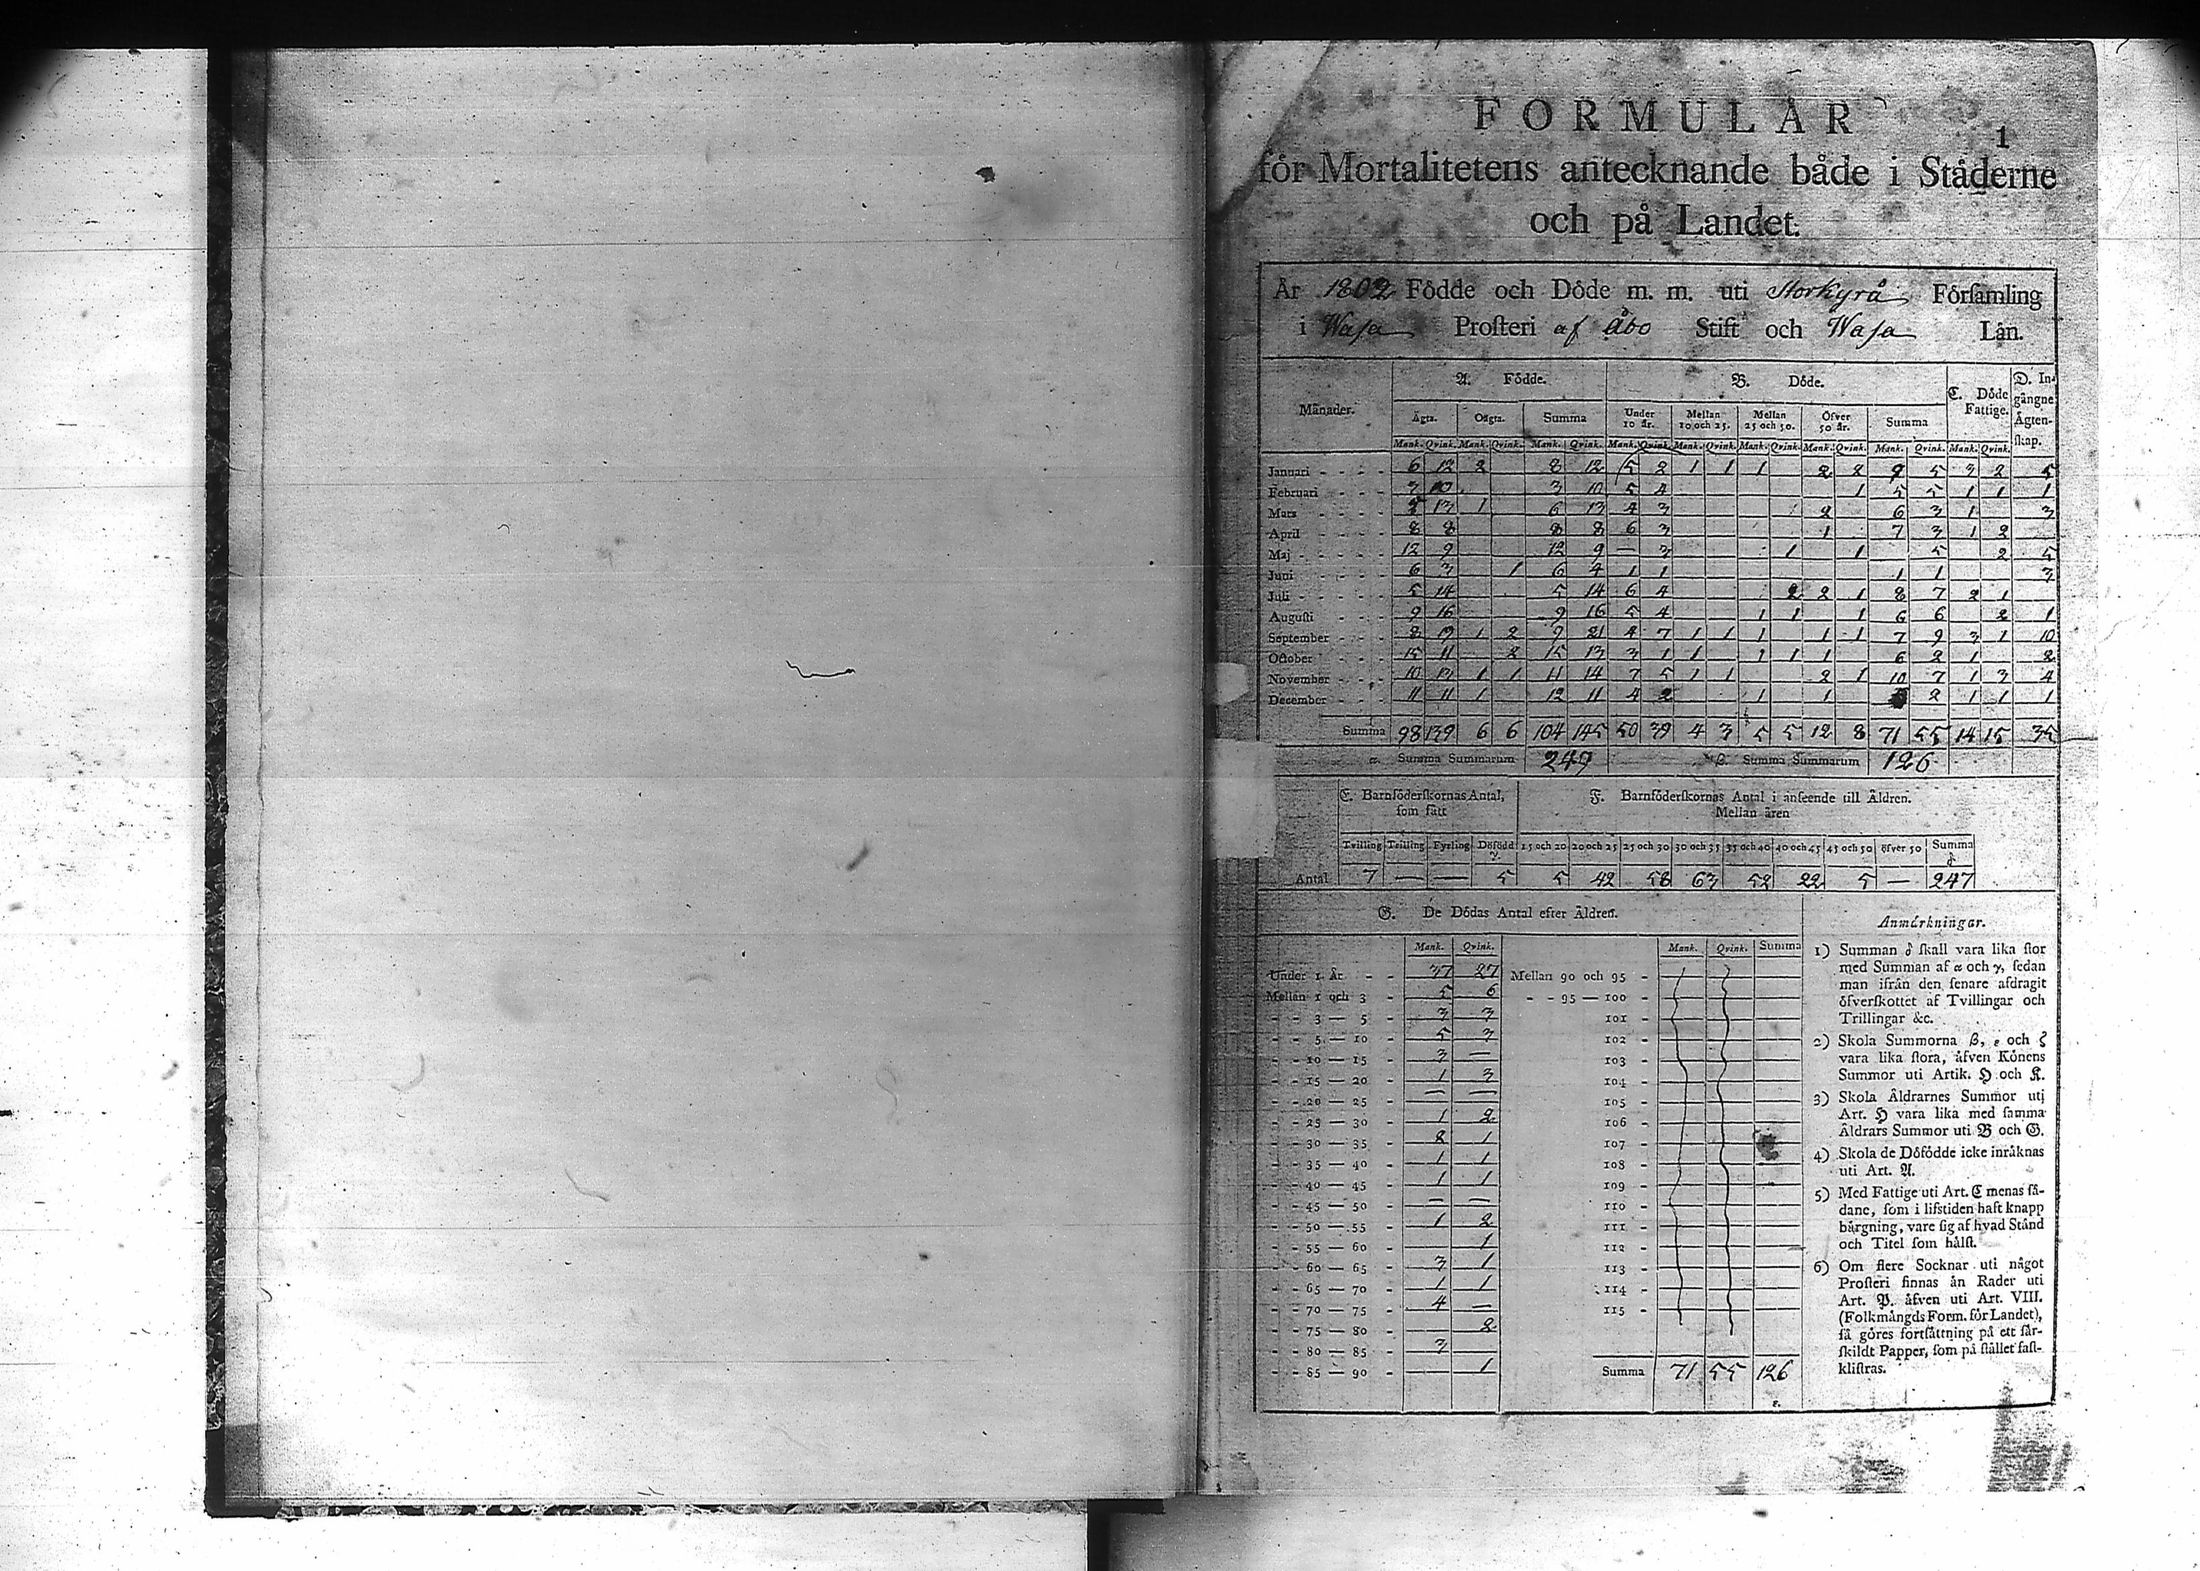 FORMULÅR
1
för Mortalitetens antecknande både i Städerne
och på Landet.
År 1802 Födde och Döde m. m. uti Storkyrå Förſamling
i Waſa Proſteri af Åbo Stift och Waſa Län.
Månader. A. Födde. B. Döde. C. Döde Fattige. D. Ingångne Ägtenſkap.
Ägta. Oägta. Summa Under 10 år. Mellan 10 och 25. Mellan 25 och 50. Öfver 50 år. Summa
Mank. Qvink. Mank. Qvink. Mank. Qvink. Mank. Qvink. Mank. Qvink. Mank. Qvink. Mank. Qvink. Mank. Qvink. Mank. Qvink.
Januari - - - - 6 12 2 8 12 5 2 1 1 1 2 2 9 5 3 2 5
Februari - - - 3 10 3 10 5 4 1 5 5 1 1 1
Mars - - - - 5 13 1 6 13 4 3 2 6 3 1 3
April - - - - 8 8 8 8 6 3 1 7 3 1 2
Maj - - - - - 12 9 12 9 — 3 1 1 5 2 5
Juni - - - - 6 3 1 6 4 1 1 1 1 3
Juli - - - - - 5 14 5 14 6 4 2 2 1 8 7 2 1
Auguſti - - - 9 16 9 16 5 4 1 1 1 6 6 2 1
September - - - 8 19 1 2 9 21 4 7 1 1 1 1 1 7 9 3 1 10
October - - - 15 11 2 15 13 3 1 1 1 1 1 6 2 1 2
November - - - 10 13 1 1 11 14 7 5 1 1 2 1 10 7 1 3 4
December - - - 11 11 1 12 11 4 2 1 1 2 1 1 1
Summa 98 139 6 6 104 145 50 39 4 3 5 5 12 8 71 55 14 15 35
α. Summa Summarum 249 β. Summa Summarum 126
E. Barnföderſkornas Antal, ſom fått
F. Barnföderſkornas Antal i anſeende till Åldren.
Mellan åren
Tvilling Trilling Fyrling Döfödd γ 15 och 20 20 och 25 25 och 30 30 och 35 35 och 40 40 och 45 45 och 50 öfver 50 Summa δ
Antal 7 — — 5 5 42 58 63 52 22 5 — 247
G. De Dödas Antal efter Åldren.
Mank. Qvink.
Under 1 År - - 37 27
Mellan 1 och 3 - 5 6
- - 3 — 5 - 3 3
- - 5 — 10 - 5 3
- - 10 — 15 - 3 —
- - 15 — 20 - 1 3
- - 20 — 25 - — —
- - 25 — 30 - 1 2
- - 30 — 35 - 2 1
- - 35 — 40 - 1 1
- - 40 — 45 - 1 1
- - 45 — 50 - — —
- - 50 — 55 - 1 2
- - 55 — 60 - 1
- - 60 — 65 - 3 1
- - 65 — 70 - 1 1
- - 70 — 75 - 4 —
- - 75 — 80 - 2
- - 80 — 85 - 3
- - 85 — 90 - 1
Mank. Qvink. Summa
Mellan 90 och 95 -
- - 95 — 100 -
101 -
102 -
103 -
104 -
105 -
106 -
107 -
108 -
109 -
110 -
111 -
112 -
113 -
114 -
115 -
Summa 71 55 126
ε.
Anmärkningar.
1) Summan δ ſkall vara lika ſtor
med Summan af α och γ, ſedan
man ifrån den ſenare afdragit
öfverſkottet af Tvillingar och
Trillingar &c.
2) Skola Summorna β, ε och ζ
vara lika ſtora, äfven Könens
Summor uti Artik. H och K.
3) Skola Åldrarnes Summor uti
Art. H vara lika med ſamma
Åldrars Summor uti B och G.
4) Skola de Döfödde icke inräknas
uti Art. A.
5) Med Fattige uti Art. C menas ſå-
dane, ſom i lifstiden haft knapp
bärgning, vare ſig af hvad Stånd
och Titel ſom hälſt.
6) Om flere Socknar uti något
Proſteri finnas än Rader uti
Art. P. äfven uti Art. VIII.
(Folkmängds Form. för Landet),
ſå göres fortſättning på ett ſär-
ſkildt Papper, ſom på ſtället faſt-
kliſtras.